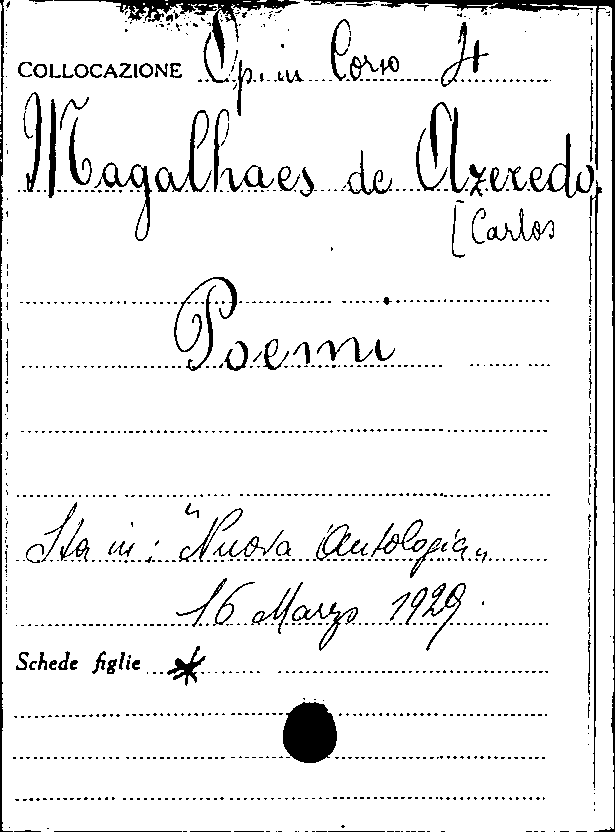 COLLOCAZIONE Op. in Corso It
Magalhaes de Azeredo,
[Carlos
Poemi
Sta in: "Nuova Antologia„
16 Marzo 1929.
Schede figlie *